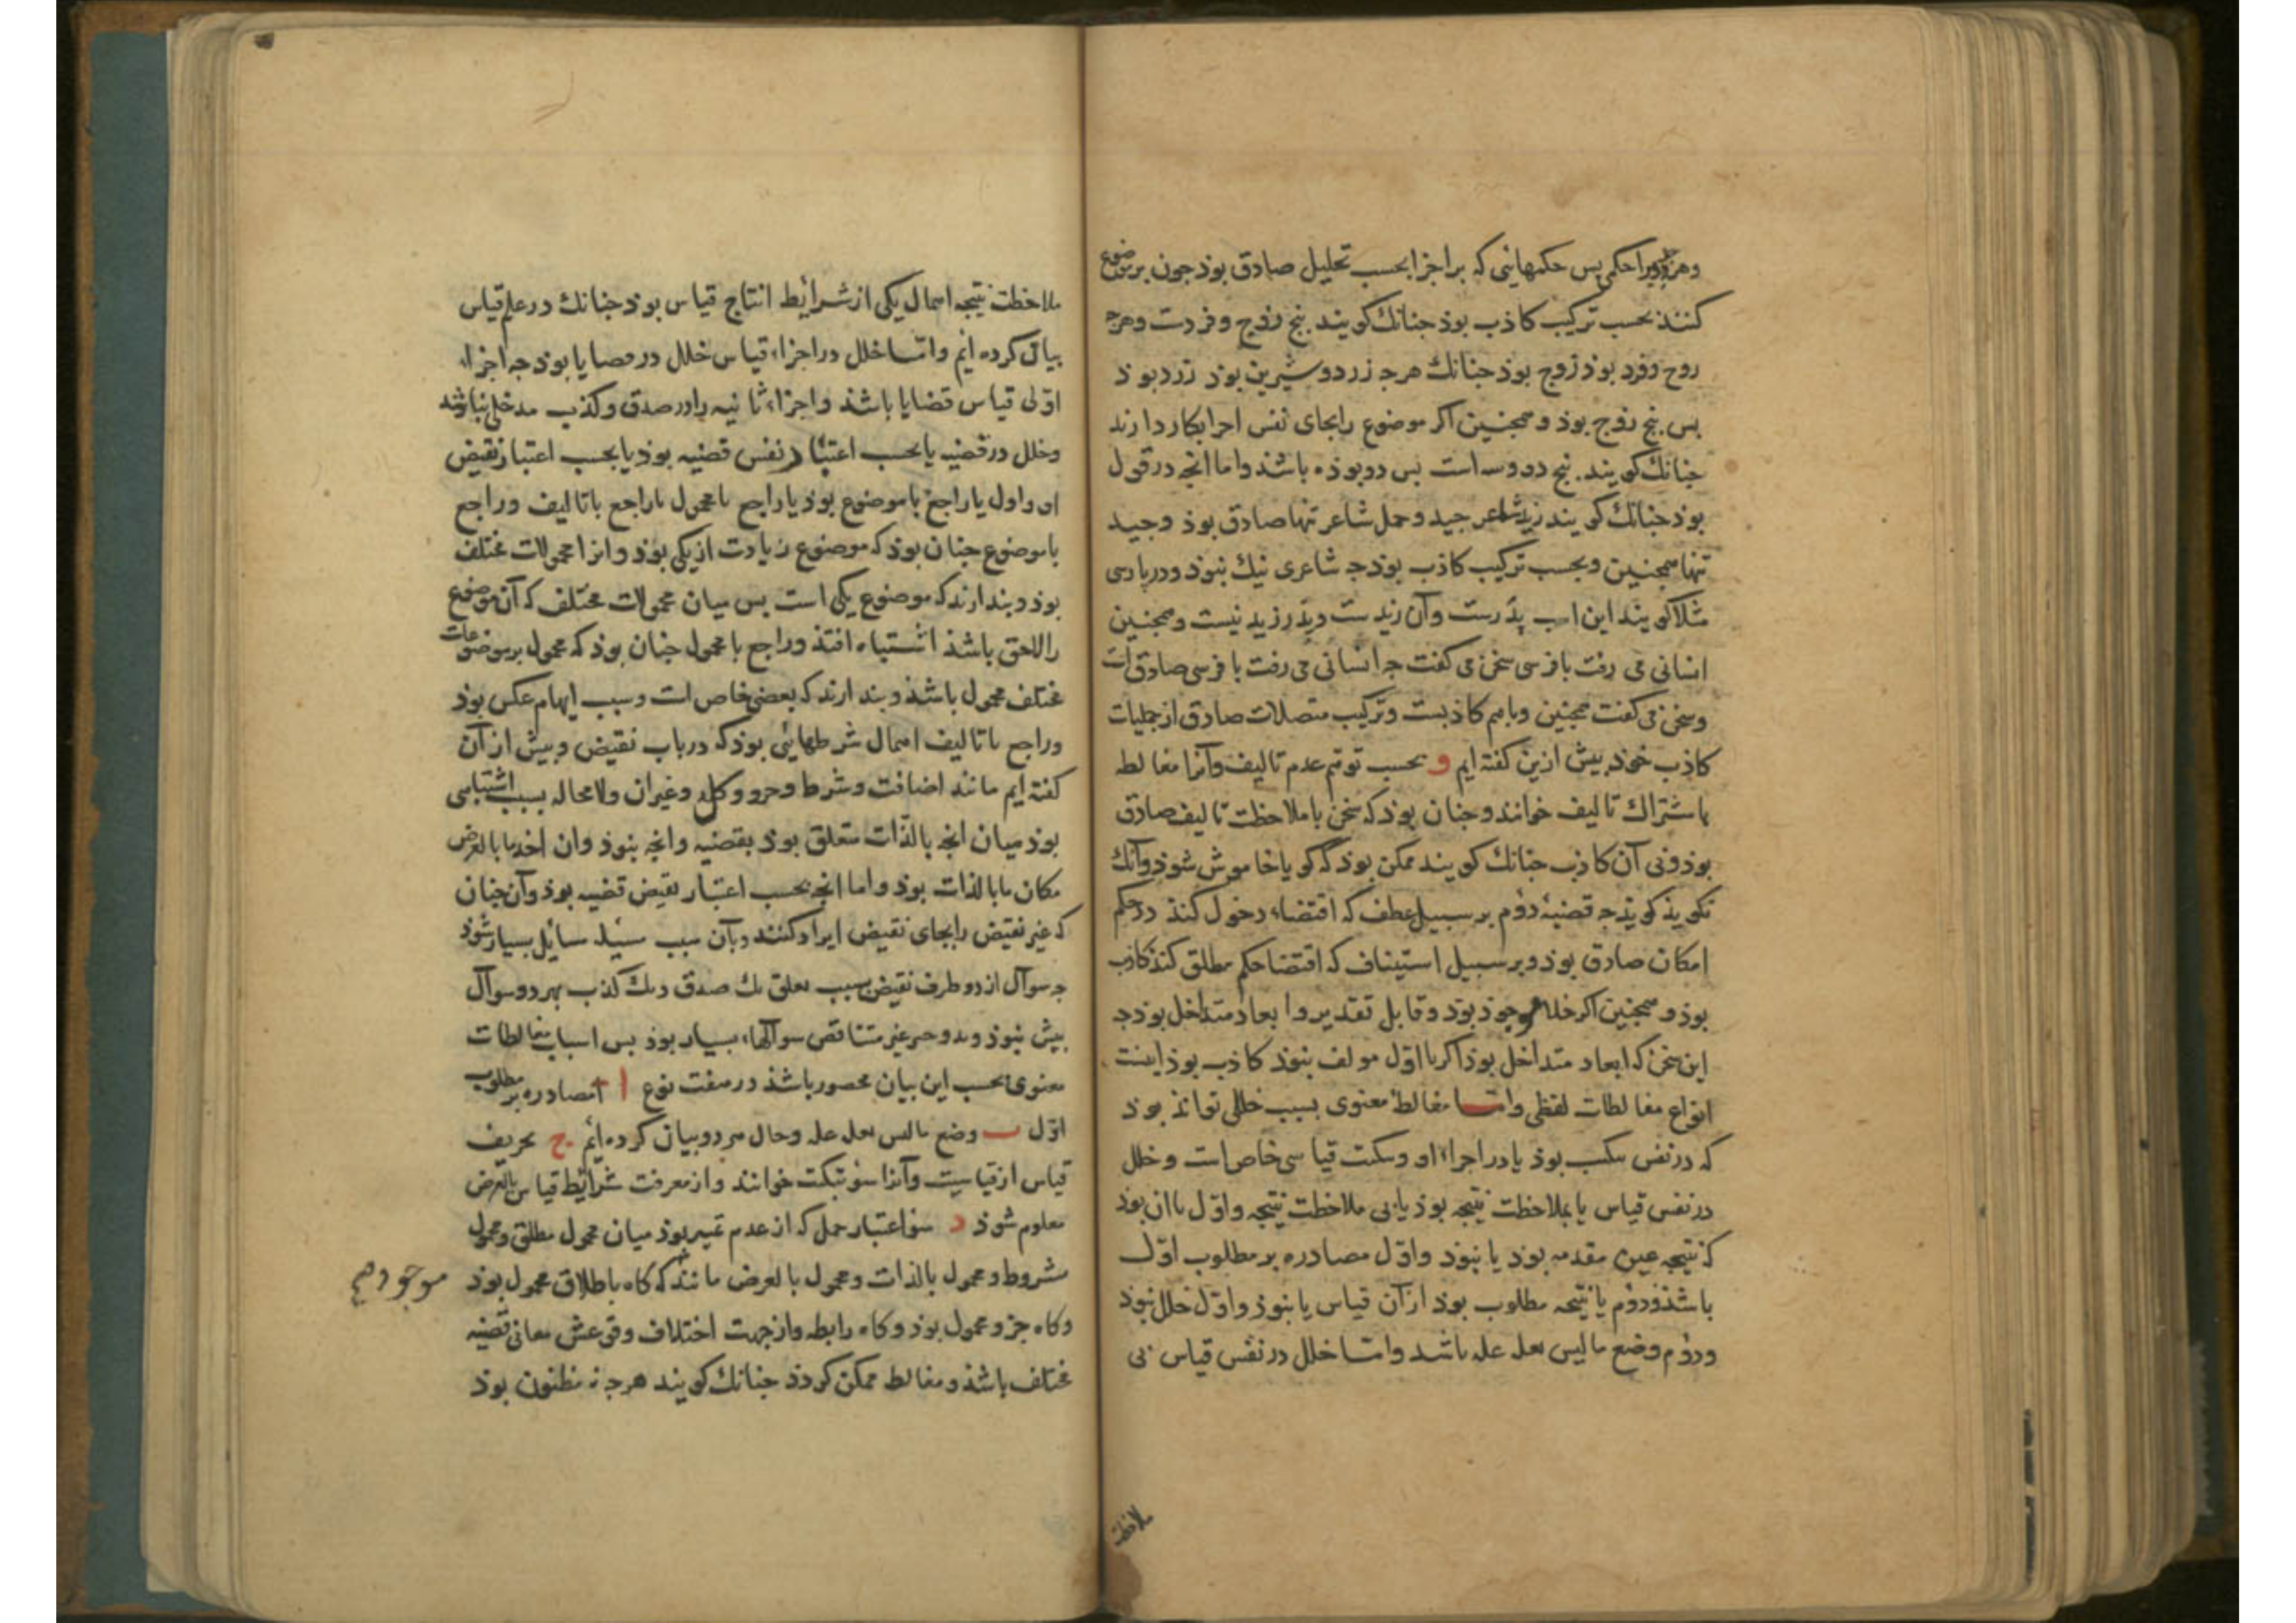 وهر جزو را حکمی پس حکمهایی که بر اجزا بحسب تحلیل صادق بوذ جون بر موضوع
کنند بحسب ترکیب کاذب بوذ جنانك کویند پنج زوج و فردست وهرجه
زوج وفرد بوذ زوج بوذ جنانك هرجه زرد و شیرین بوذ زرد بوذ
بس پنج زوج بوذ و همجنین اکر موضوع را بجای نفس اجزا بکار دارند
جنانك کویند پنج دو وسه است بس دو بوذه باشذ واما انجه در قول
بوذ جنانك کویند زید شاعر جید وحمل شاعر تنها صادق بوذ وجید
تنها همجنین وبحسب ترکیب کاذب بوذ جه شاعری نیك نبوذ ودر بارسی
مثلا کویند این اب پدرست وآن زیدست وپدر زید نیست وهمجنین
انسانی می رفت با فرسی سخن می کفت جه انسانی می رفت با فرسی صادق است
وسخن می کفت همجنین وباهم کاذبست وترکیب متصلات صادق از حملیات
کاذب خوذ بیش ازین کفته ایم و بحسب توهم عدم تالیف وآنرا مغالطه
باشتراك تالیف خوانند وجنان بوذ که سخن با ملاحظت تالیف صادق
بوذ وبی آن کاذب جنانك کویند ممکن بوذ که کویا خاموش شوذ وآنك
نکویذ کویذ جه قضیهٔ دوم بر سبیل عطف که اقتضاء دخول کنذ در حکم
امکان صادق بوذ وبر سبیل استیناف که اقتضا حکم مطلق کنذ کاذب
بوذ و همجنین اکر خلا موجوذ بوذ وقابل تقدیر وا بعاد متداخل بوذ جه
این سخن که ابعاد متداخل بوذ اکر با اول مولف نبوذ کاذب بوذ اینست
انواع مغالطات لفظی واما مغالطهٔ معنوی بسبب خللی تواند بوذ
که در نفس مبکت بوذ یا در اجزاء او ومبکت قیاسی خاص است وخلل
در نفس قیاس یا بملاحظت نتیجه بوذ یا بی ملاحظت نتیجه واول یا آن بوذ
که نتیجه عین مقدمه بوذ یا نبوذ واول مصادره بر مطلوب اول
باشذ ودوم یا نتیجه مطلوب بوذ از آن قیاس یا نبوذ واول خلل نبوذ
ودوم وضع ما لیس بعلة علة باشد واما خلل در نفس قیاس بی
ملاحظت
ملاحظت نتیجه اهمال یکی از شرائط انتاج قیاس بوذ جنانك در علم قیاس
بیان کرده ایم واما خلل در اجزاء قیاس خلل در قضایا بوذ جه اجزاء
اولی قیاس قضایا باشذ واجزاء ثانیه را در صدق وکذب مدخلی نباشد
وخلل در قضیه یا بحسب اعتبار نفس قضیه بوذ یا بحسب اعتبار نقیض
او واول یا راجع با موضوع بوذ یا راجع با محمول یا راجع با تالیف وراجع
با موضوع جنان بوذ که موضوع زیادت از یکی بوذ وانرا محمولات مختلف
بوذ وبندارند که موضوع یکی است بس میان محمولات مختلف که آن موضوع
را لاحق باشذ اشتباه افتذ وراجع با محمول جنان بوذ که محمول بر موضوعات
مختلف محمول باشذ وبندارند که بعضی خاص است وسبب ایهام عکس بوذ
وراجع با تالیف اهمال شرطهائی بوذ که در باب نقیض وبیش از آن
کفته ایم مانند اضافت وشرط وجزو وکل وغیر ان ولا محاله بسبب اشتباهی
بوذ میان انجه بالذات متعلق بوذ بقضیه وانجه نبوذ وان اخذ ما بالعرض
مکان ما بالذات بوذ واما انجه بحسب اعتبار نقیض قضیه بوذ وآن جنان
که غیر نقیض را بجای نقیض ایراد کنند وبآن سبب مسئله مسائل بسیار شوذ
جه سوال از دو طرف نقیض بسبب تعلق یك صدق ویك کذب بهر دو سوال
بیش نبوذ وبدو جزء غیر متناقض سوالها بسیار بوذ بس اسباب مغالطات
معنوی بحسب این بیان محصور باشذ در هفت نوع ا مصادره بر مطلوب
اول ب وضع ما لیس بعلة علة وحال هر دو بیان کرده ایم ج تحریف
قیاس از قیاسیت وآنرا سوء تبکیت خوانند واز معرفت شرائط قیاس بالعرض
معلوم شوذ د سوء اعتبار حمل که از عدم تمییز بوذ میان محمول مطلق ومحمول
مشروط ومحمول بالذات ومحمول بالعرض مانند که کاه باطلاق محمول بوذ
موجود هم
وکاه جزو محمول بوذ وکاه رابطه واز جهت اختلاف وقوعش معانی قضیه
مختلف باشذ ومغالطه ممکن کردد جنانك کویند هرجه نه مظنون بوذ